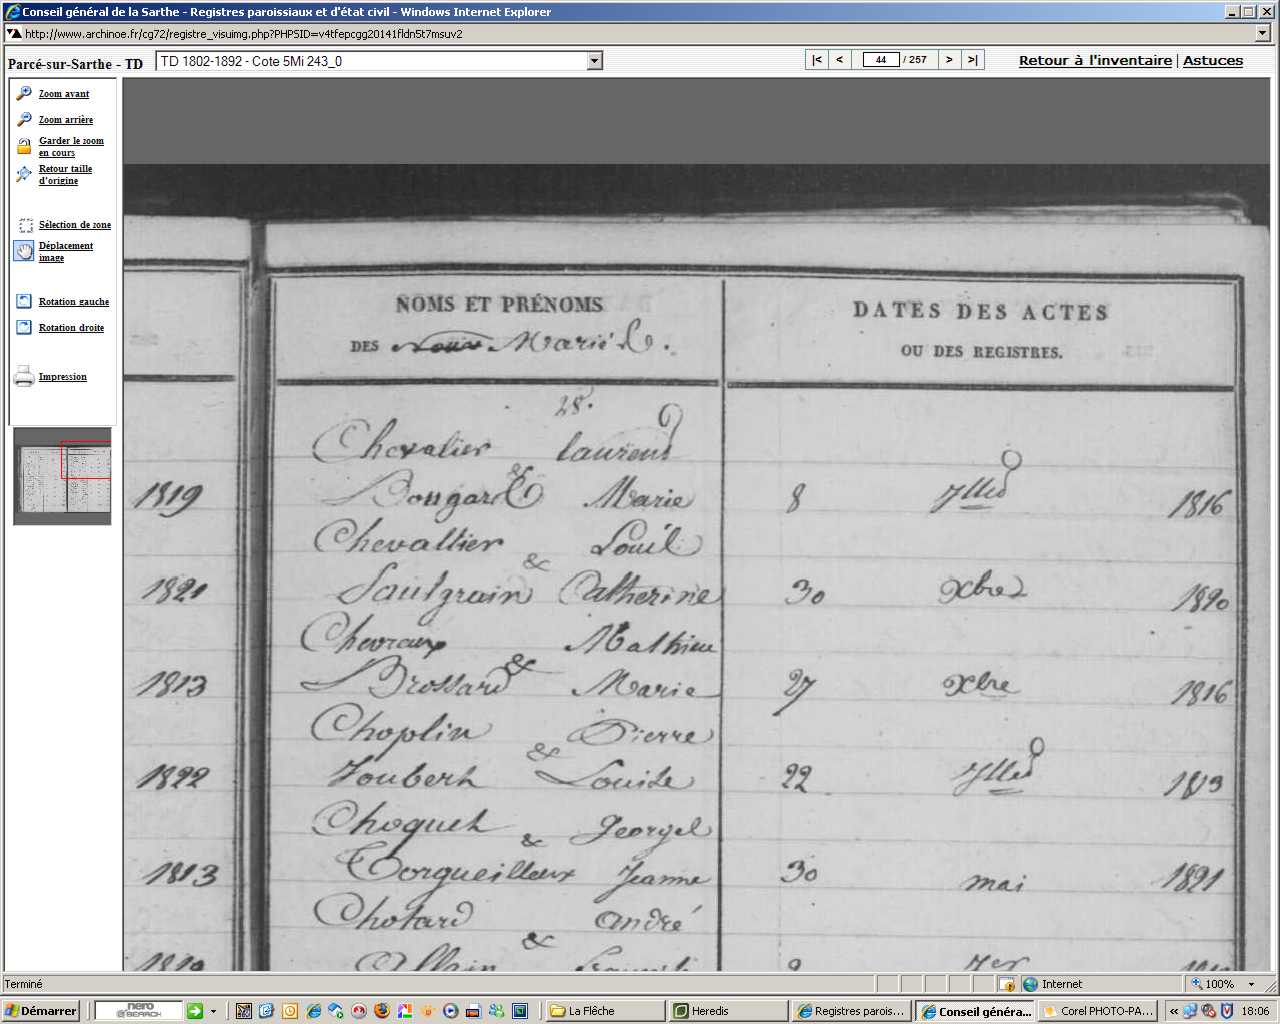 Conseil général de la Sarthe - Registres paroissiaux et d'état civil - Windows Internet Explorer
http://www.archinoe.fr/cg72/registre_visuimg.php?PHPSID=v4tfepcgg20141fldn5t7msuv2
Parcé-sur-Sarthe - TD TD 1802-1892 - Cote 5Mi 243_0 |< < 44 / 257 > >| Retour à l'inventaire | Astuces
Zoom avant
Zoom arrière
Garder le zoom
en cours
Retour taille
d'origine
Sélection de zone
Déplacement
image
Rotation gauche
Rotation droite
Impression
NOMS ET PRÉNOMS
DES Marié
DATES DES ACTES
OU DES REGISTRES.
28.
Chevalier Laurent
&
1819 Bougard Marie 8 1816
Chevallier Louis
&
1821 Saulgrain Catherine 30 Xbre 1820
Chevraux Mathieu
&
1813 Brossard Marie 27 Xbre 1816
Choplin Pierre
&
1822 Joubert Louise 22 1813
Choquet Georges
&
1813 Torgueilleux Jeanne 30 mai 1821
Chotard andré
&
Terminé Internet 100%
Démarrer nero SEARCH La Flêche Heredis Registres parois... Conseil généra... Corel PHOTO-PA... « 18:06